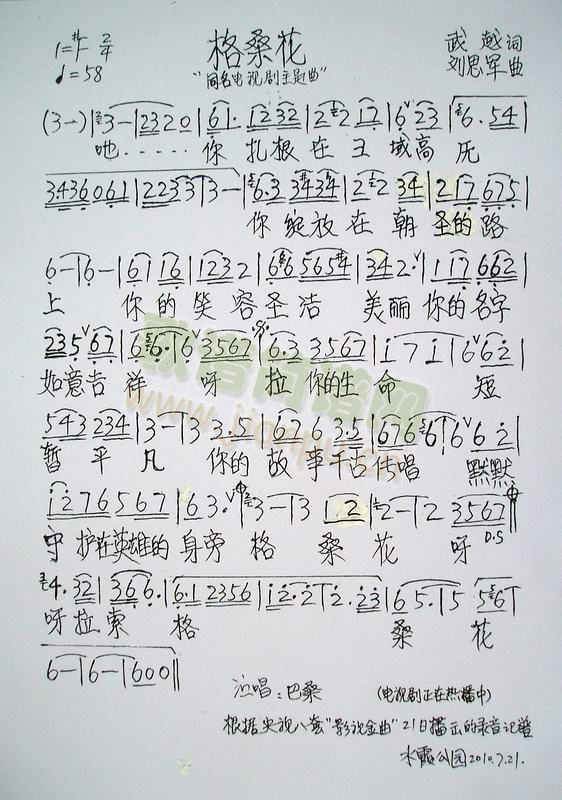 1=#F 2/4
♩=58
格桑花
"同名电视剧主题曲"
武越词
刘思军曲
(3 -) | 3 - | 2320 | 61· 1232 | 2 2 17 | 6 23 | 6· 54 |
吔······ 你 扎根在王域高厄
3436061 | 22333 | 3 - | 6·3 3434 | 2 2 34 | 217 675 |
你绽放在朝圣的路
6 - | 6 - | 61 16 | 1232 | 66 5654 | 342· | 117 662 |
上 你的笑容圣洁 美丽你的名字
235 67 | 6 6· | 6 3567 | 6·3 3567 | i 7 i | 6 62 |
如意吉祥 呀 拉你的生命 短
543 234 | 3 - | 3 3·5 | 67 6 3·5 | 676 6 | 6 6 2 |
暂平凡 你的故事千古传唱 默默
i276 567 | 6 3· | 3 - | 3 12 | 2 - | 2 3567 ||
守护在英雄的身旁格桑花 呀
D.S
4· 32 | 366· | 6·1 2356 | i·2·2 | 2· 23 | 65· | 5 56 |
呀拉索 格 桑 花
6 - | 6 - | 600 ||
演唱：巴桑 (电视剧正在热播中)
根据央视八套"影视金曲"21日播出的录音记谱
水霞公园2010.7.21.
歌谱简谱网
www.jianpu.cn